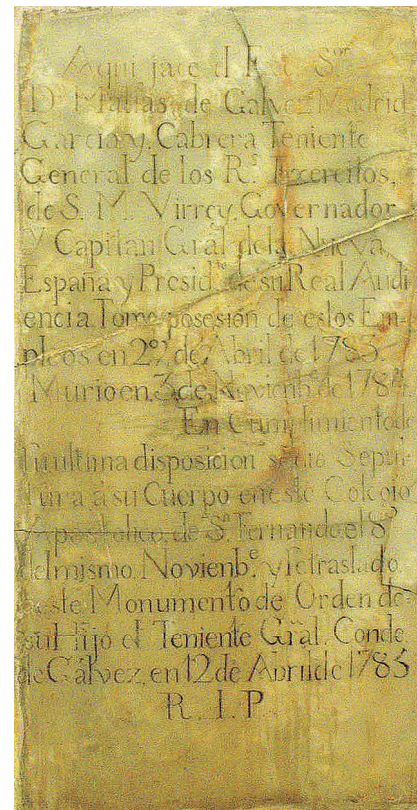 Aqui jace el Exc.mo S.or
D.n Matias de Galvez Madrid
Garcia y Cabrera Teniente
General de los R.s Exercitos,
de S. M. Virrey, Governador
Y Capitan Gral de la Nueva
España y Presid.te de su Real Audi
encia Tomo posesión de estos Em-
pleos en 29 de Abril de 1783.
Murio en 3 de Novienb.e de 1784.
En Cumplimiento de
su ultima disposicion se dio Sepul-
tura a su Cuerpo en este Colegio
Apostolico de S.n Fernando el 8
del mismo Novienb.e y se traslado
a este Monumento de Orden de
su Hijo el Teniente Gral. Conde
de Gálvez, en 12 de Abril de 1785
R. I. P.